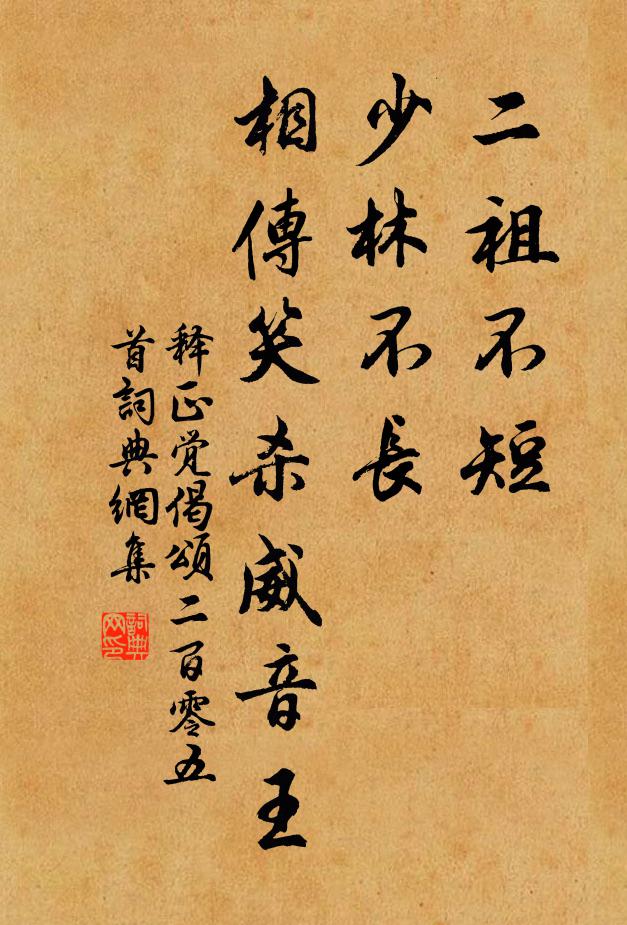 二祖不短
少林不長
相傳笑杀威音王
释正觉偈頌二百零五
首詞典網集
詞典
网印